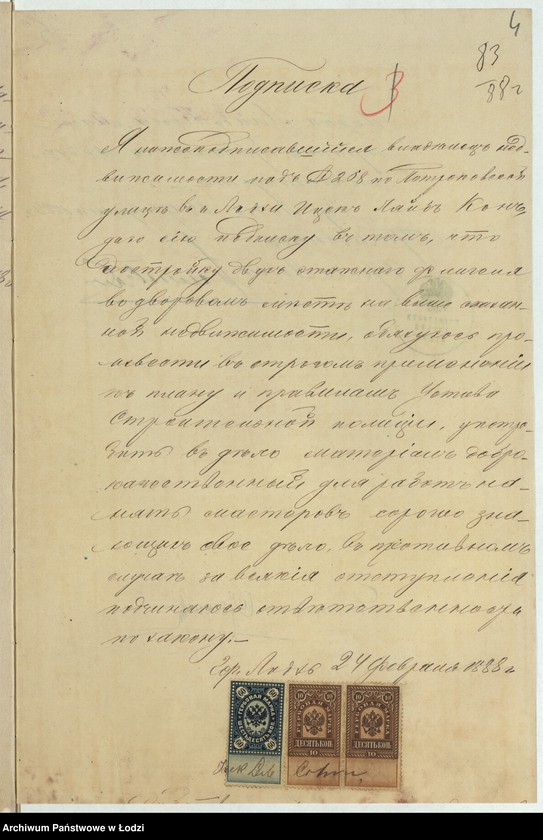 4
83
88 г
Подписка
3
Я нижеподписавшийся владелецъ нед-
вижимости подъ № 258 по Петроковской
улицѣ въ г. Лодзи Ицекъ Лайбъ Конъ,
даю сію подписку въ томъ, что
постройку двухъ этажнаго флигеля
въ дворовомъ мѣстѣ на выше означен-
ной недвижимости, обязуюсь про-
извести въ строгомъ примѣненіи
къ плану и правиламъ Устава
Строительной полиціи, употре-
бить въ дѣло матеріалъ добро-
качественный, для работъ на-
нять мастеровъ хорошо зна-
ющихъ свое дѣло, въ противномъ
случаѣ за всякія отступленія
подчиняюсь отвѣтственности
по закону.—
Гор. Лодзь 24 Февраля 1888 г.
60 60
ГЕРБОВАЯ МАРКА
ШЕСТЬДЕСЯТЪ КОП.
60 60
10 10
ГЕРБОВАЯ МАРКА
ДЕСЯТЬ КОП.
10
10 10
ГЕРБОВАЯ МАРКА
ДЕСЯТЬ КОП.
10
Archiwum Państwowe w Łodzi